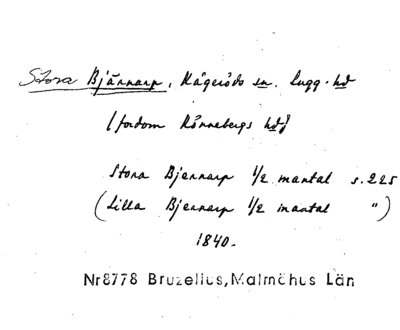 Stora Bjärnarp, Kågeröds sn. Lugg. hd
(fordom Rönnebergs hd)
Stora Bjernarp 1/2 mantal s. 225
(Lilla Bjernarp 1/2 mantal ")
1840.
Nr8778 Bruzelius, Malmöhus Län